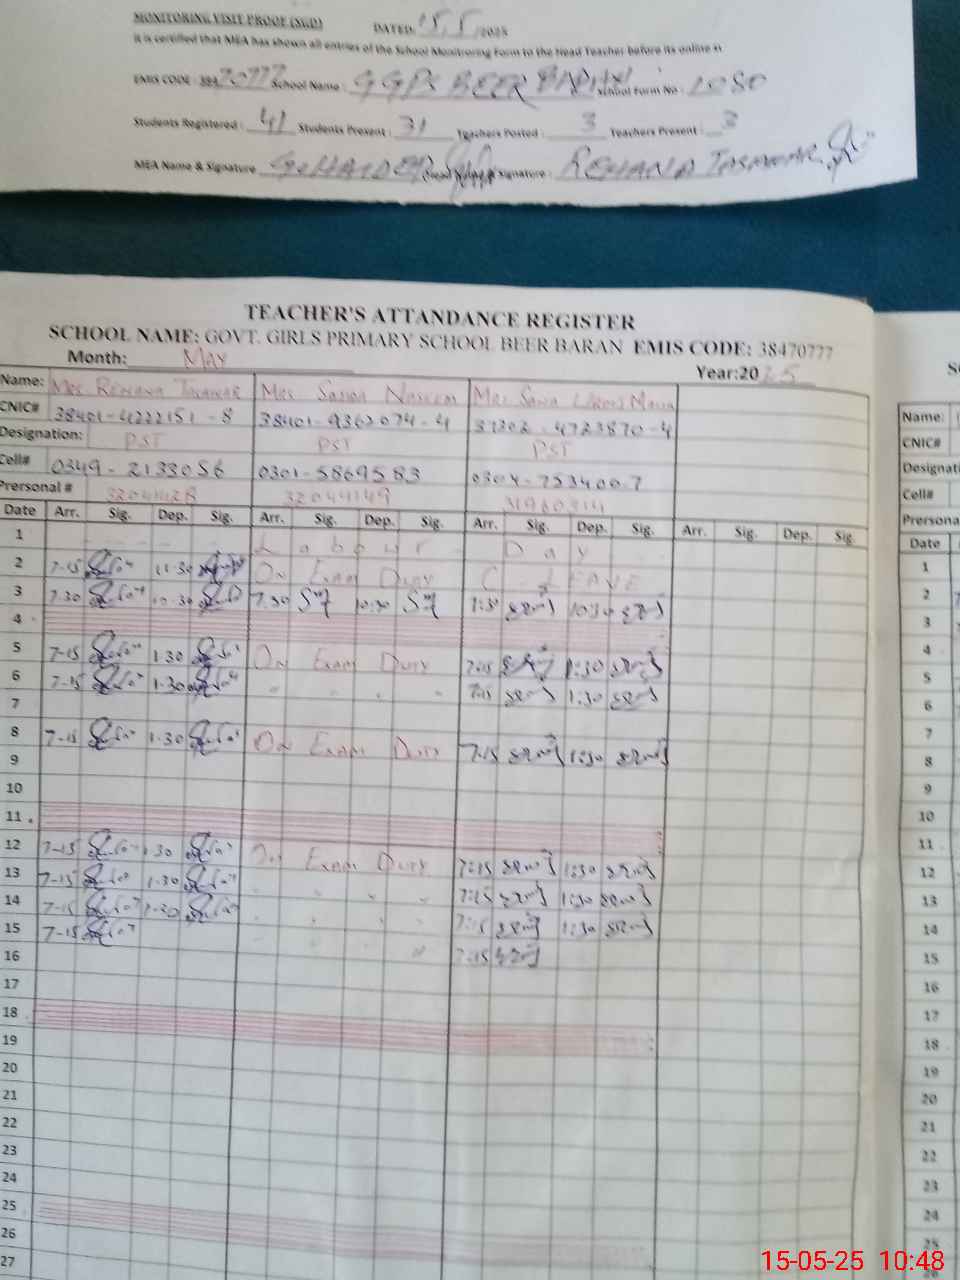 MONITORING VISIT PROOF (SGD) DATED: 15/5/2025
It is certified that MEA has shown all entries of the School Monitroring Form to the Head Teacher before its online
EMIS CODE : 384 70777 School Name : GGPS BEER BARAN School Form No : 1080
Students Registered : 41 Students Present : 31 Teachers Posted : 3 Teachers Present : 3
MEA Name & Signature G. HAIDER Signature : REHANA TASAWAR
TEACHER'S ATTANDANCE REGISTER
SCHOOL NAME: GOVT. GIRLS PRIMARY SCHOOL BEER BARAN EMIS CODE: 38470777
Month: MAY Year:2025
Name: Mrs. REHANA TASAWAR Mrs Saima Nasreem Mrs Sana Name:
CNIC# 38401-4222151-8 38401-9362074-4 37302-4723870-4 CNIC#
Designation: PST PST PST Designati
Cell# 0349-2133056 0301-5869583 0304-7534007 Cell#
Prersonal # 32041128 32044149 31960314 Prersona
Date Arr. Sig. Dep. Sig. Arr. Sig. Dep. Sig. Arr. Sig. Dep. Sig. Arr. Sig. Dep. Sig. Date
1 Labour Day 1
2 7-15 11-30 On Exam Duty C LEAVE 2
3 7.30 10-30 7.30 10:30 7:30 10:30 3
4 4
5 7-15 1-30 On Exam Duty 7:15 1:30 5
6 7-15 1-30 " " " " 7:15 1:30 6
7 7
8 7-15 1-30 On Exam Duty 7-15 1:30 8
9 9
10 10
11 11
12 7-15 1 30 On Exam Duty 7:15 1:30 12
13 7-15 1-30 " " " " 7:15 1:30 13
14 7-15 1-30 " " " " 7:15 1:30 14
15 7-15 " 7:15 15
16 16
17 17
18 18
19 19
20 20
21 21
22 22
23 23
24 24
25 25
26
27
15-05-25 10:48